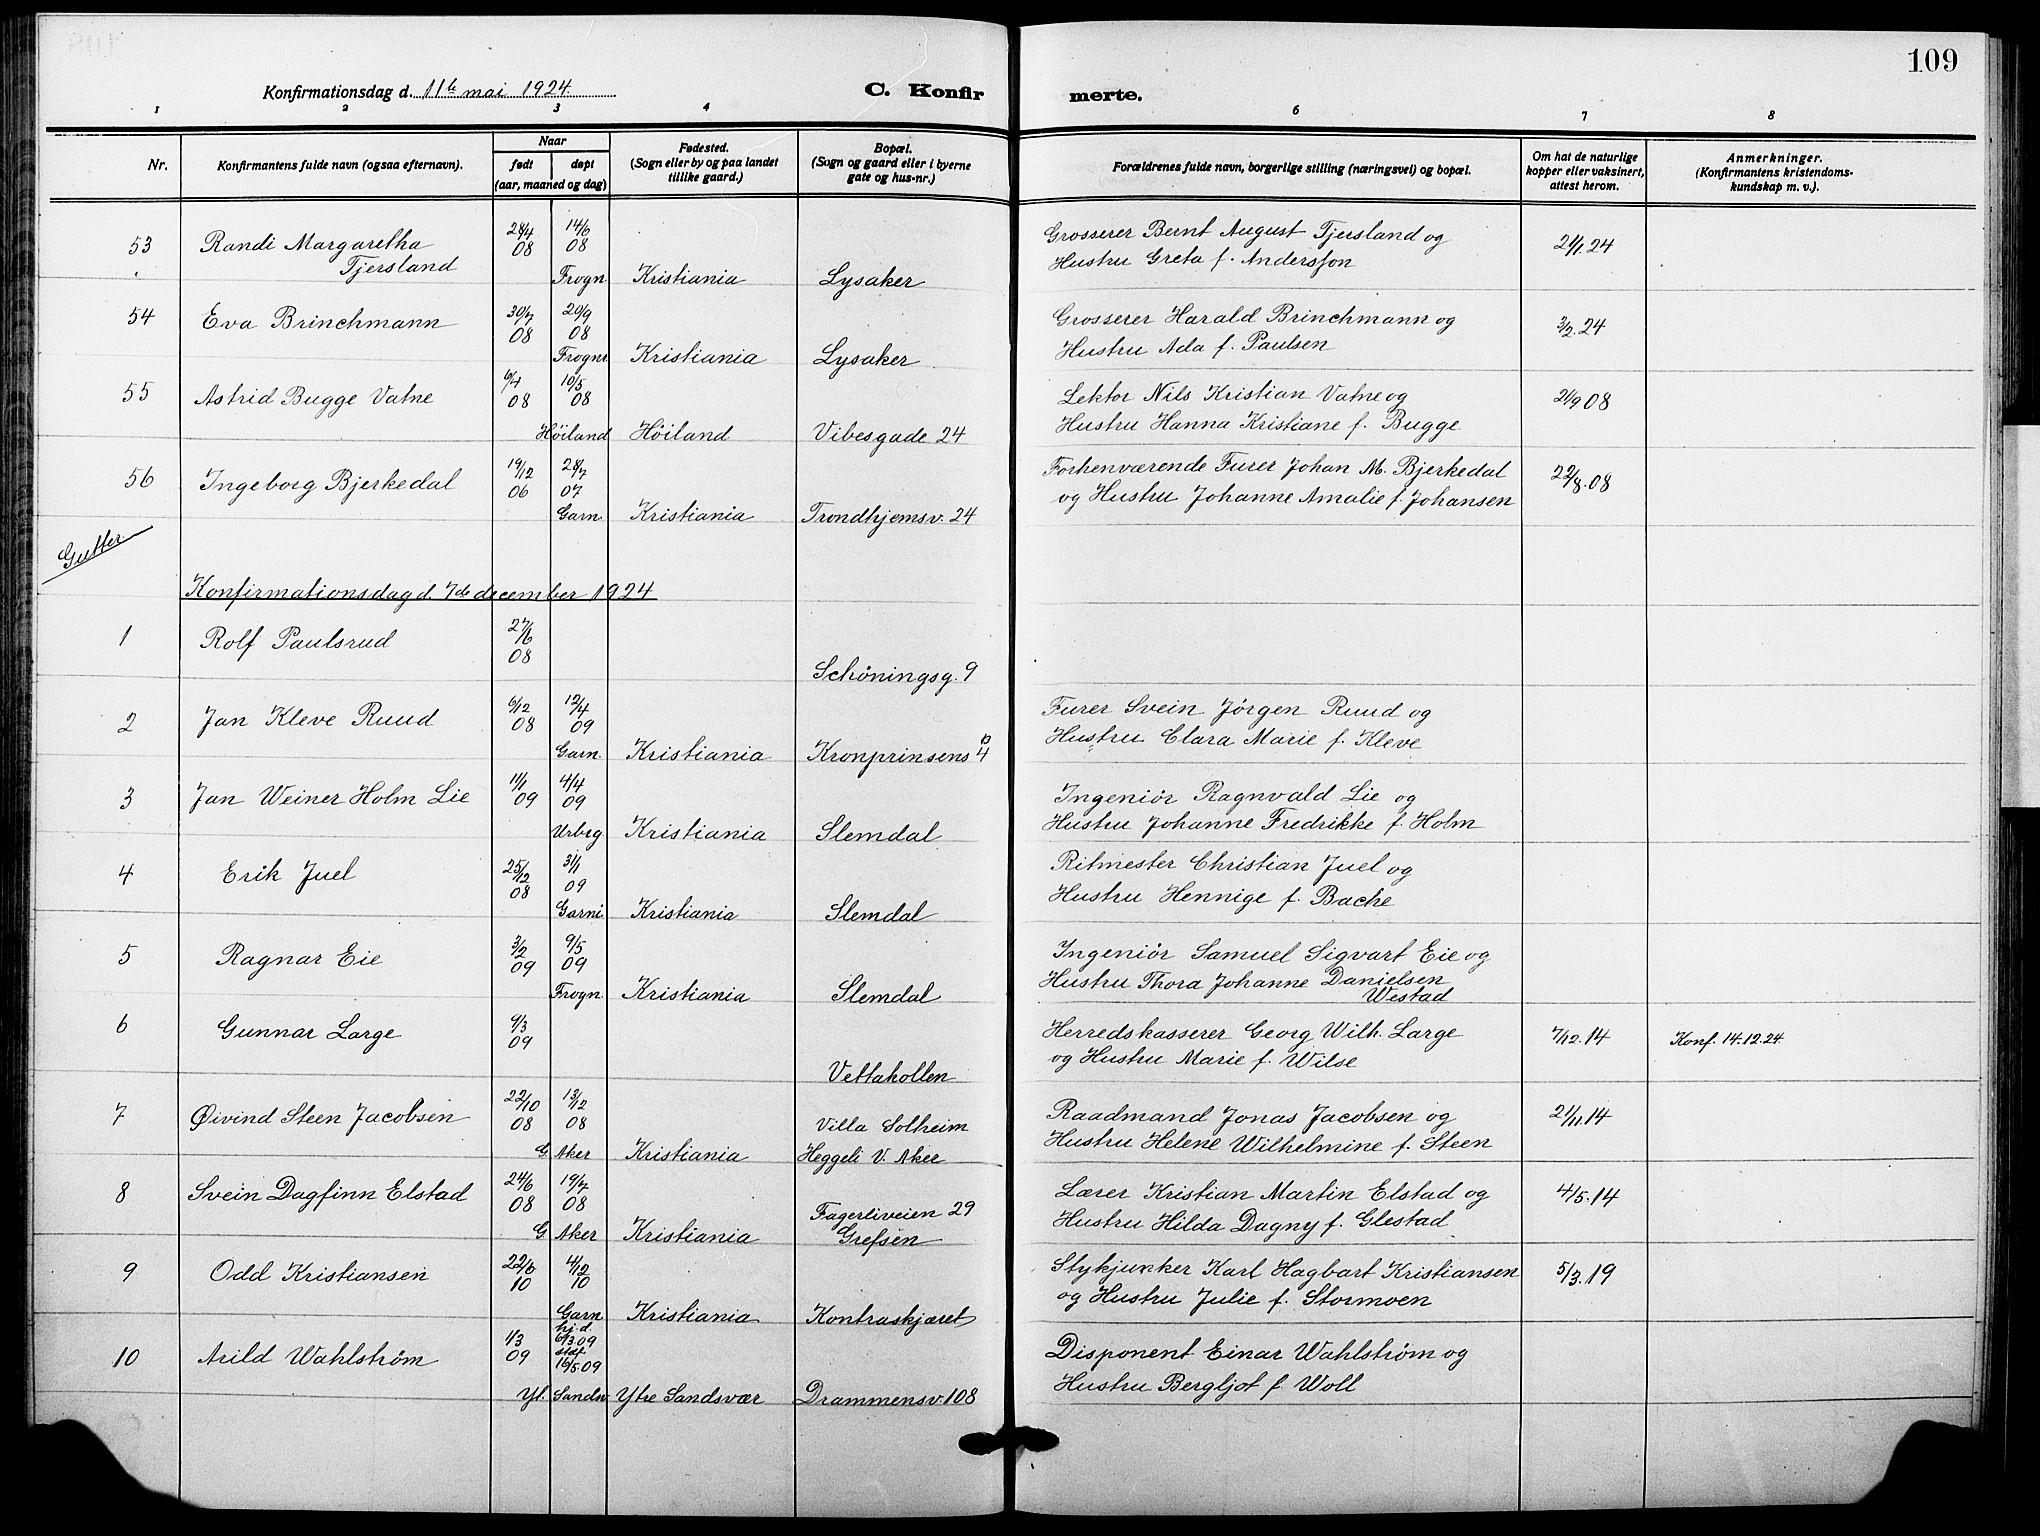 109
Konfirmationsdag d. 11te mai 1924
C. Konfirmerte.
1 2 3 4 6 7 8
Nr.
Konfirmantens fulde navn (ogsaa efternavn).
Naar
født
døpt
(aar, maaned og dag)
Fødested.
(Sogn eller by og paa landet
tillike gaard.)
Bopæl.
(Sogn og gaard eller i byerne
gate og hus-nr.)
Forældrenes fulde navn, borgerlige stilling (næringsvei) og bopæl.
Om hat de naturlige
kopper eller vaksinert,
attest herom.
Anmerkninger.
(Konfirmantens kristendoms-
kundskap m. v.).
53 Randi Margaretha Tjersland 28/4 08 14/6 08 Frogn. Kristiania Lysaker
Grosserer Bernt August Tjersland og
Hustru Greta f. Andersson
21/1 24
54 Eva Brinchmann 30/7 08 20/9 08 Frogn. Kristiania Lysaker
Grosserer Harald Brinchmann og
Hustru Ada f. Paulsen
3/2. 24
55 Astrid Bugge Vatne 6/4 08 10/5 08 Höiland Höiland Vibesgade 24
Lektor Nils Kristian Vatne og
Hustru Hanna Kristiane f. Bugge
21/9 08
56 Ingeborg Bjerkedal 19/12 06 28/7 07 Garn. Kristiania Trondhjemsv. 24
Forhenværende Furer Johan M. Bjerkedal
og Hustru Johanne Amalie f. Johansen
22/8. 08
Gutter.
Konfirmationsdag d. 7de december 1924
1 Rolf Paulsrud 27/6 08 Schöningsg. 9
2 Jan Kleve Ruud 6/12 08 12/4 09 Garn. Kristiania Kronprinsens 4
Furer Svein Jörgen Ruud og
Hustru Clara Marie f. Kleve
3 Jan Weiner Holm Lie 11/1 09 4/4 09 Urbyg Kristiania Slemdal
Ingeniör Ragnvald Lie og
Hustru Johanne Fredrikke f. Holm
4 Erik Juel 25/12 08 31/1 09 Garni. Kristiania Slemdal
Ritmester Christian Juel og
Hustru Hennige f. Bache
5 Ragnar Eie 3/2 09 9/5 09 Frogn. Kristiania Slemdal
Ingeniör Samuel Sigvart Eie og
Hustru Thora Johanne Danielsen
Westad
6 Gunnar Large 9/3 09 Vettakollen
Herredskasserer Georg Wilh. Large
og Hustru Marie f. Wilse
7/12. 14
Konf. 14.12.24
7 Øivind Steen Jacobsen 22/10 08 13/12 08 G. Aker Kristiania Villa Solheim
Heggeli V. Aker
Raadmand Jonas Jacobsen og
Hustru Helene Wilhelmine f. Steen
21/11. 14
8 Svein Dagfinn Elstad 24/6 08 19/7 08 G. Aker Kristiania Fagerliveien 29
Grefsen
Lærer Kristian Martin Elstad og
Hustru Hilda Dagny f. Glestad
4/5. 14
9 Odd Kristiansen 22/6 10 4/12 10 Garn Kristiania Kontraskjæret
Stykjunker Karl Hagbart Kristiansen
og Hustru Julie f. Stormoen
5/3. 19
10 Arild Wahlström 1/3 09 hj.d. 6/3 09 stdf. 16/5 09 Yt. Sandsv. Ytre Sandsvær Drammensv. 108
Disponent Einar Wahlström og
Hustru Bergljot f. Woll